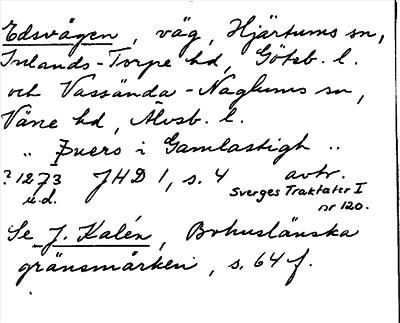 Edsvägen, väg, Hjärtums sn,
Inlands-Torpe hd, Götsb. l.
och Vassända-Naglums sn,
Väne hd, Älvsb. l.
„ Þuers i Gamlastigh „
? 1273 JHD 1, s. 4 avtr.
u.d. Sverges Traktater I
nr 120.
Se J. Kalén, Bohuslänska
gränsmärken, s. 64 f.